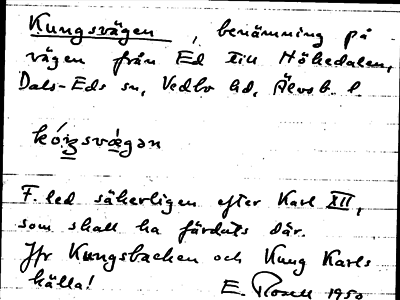 Kungsvägen, benämning på
vägen från Ed till Hökedalen,
Dals-Eds sn, Vedbo hd, Älvsb. l.
F. led säkerligen efter Karl XII,
som skall ha färdats där.
Jfr Kungsbacken och Kung Karls
källa!
E. Rosell 1950